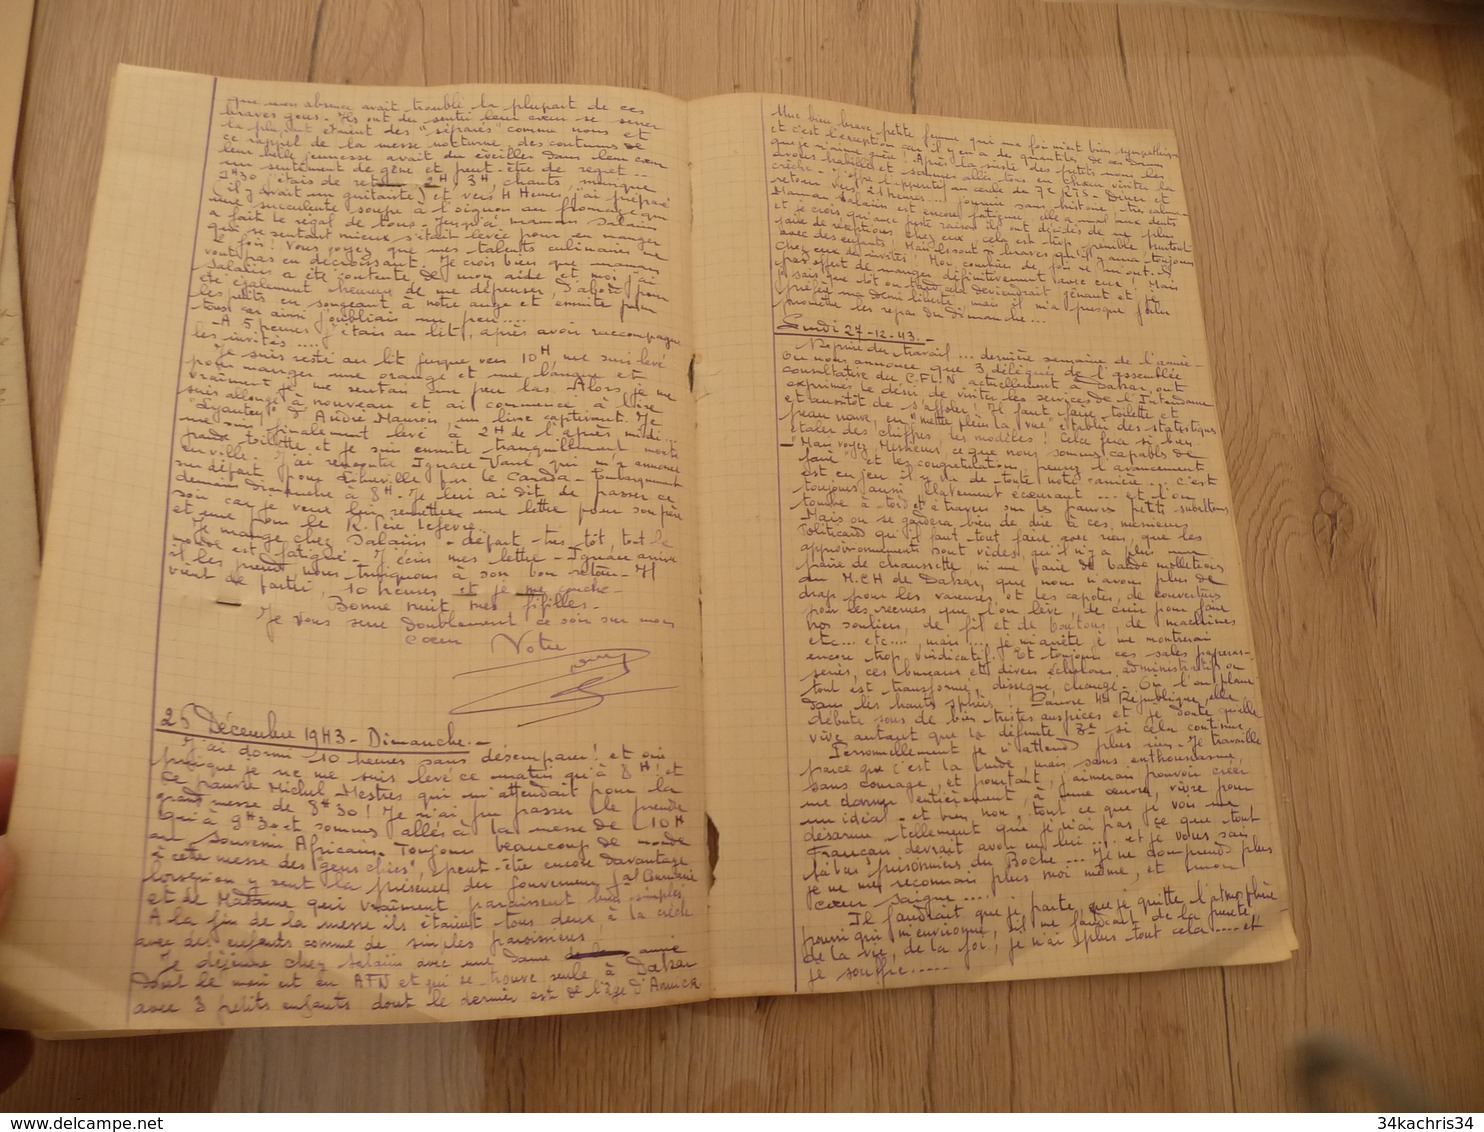 que mon absence avait troublé la plupart de ces
braves gens. Ils ont du sentir leur cœur se serrer
la plupart étaient des "séparés" comme nous et
ce rappel de la messe nocturne, des coutumes de
leur belle jeunesse avait du éveiller dans leur cœur
un sentiment de gêne et peut-être de regret...
1H30 j'étais de retour 2H, 3H, chants, musique
(il y avait un guitariste) et vers 4 Heures j'ai préparé
une succulente soupe à l'oignon au fromage qui
a fait le régal de tous. Jusqu'à maman Salaün
qui se sentant mieux s'était levée pour en manger
! Vous voyez que mes talents culinaires ne
vont pas en décroissant. Je crois bien que maman
Salaün a été contente de mon aide et moi j'ai
été également heureux de me dépenser, d'abord pour
les petits en songeant à notre ange et ensuite pour
tous car ainsi j'oubliais un peu....
- A 5 heures j'étais au lit, après avoir raccompagné
les invités ....
Je suis resté au lit jusque vers 10H me suis levé
pour manger une orange et une banane et
vraiment je me sentais un peu las. Alors, je me
suis allongé à nouveau et ai commencé à lire
"Lyautey" d'André Maurois, un livre captivant. Je
me suis finalement levé à 2H de l'après midi...
toilette et je suis ensuite tranquillement monté
en ville. J'ai rencontré Ignace qui m'a annoncé
son départ pour Libreville sur le Canada - Embarquement
demain Dimanche à 8H. Je lui ai dit de passer ce
soir car je veux lui remettre une lettre pour son père
et une pour le R. Père Lefèvre
Je mange chez Salaün - départ très tôt, tout le
monde est fatigué - J'écris mes lettre - Ignace arrive
il les prend, nous trinquons à son bon retour - Il
vient de partir, 10 heures et je me couche -
Bonne nuit mes fifilles -
Je vous serre doublement ce soir sur mon
cœur Votre
25 Décembre 1943 - Dimanche. -
J'ai dormi 10 heures sans désemparer! et oui
puisque je ne me suis levé ce matin qu'à 8H! et
ce pauvre Michel Mestres qui m'attendait pour la
grand messe de 8H30! Je n'ai pu passer le prendre
qu'à 9H30 et sommes allés à la messe de 10H
au Souvenir Africain. Toujours beaucoup de monde
à cette messe des "gens chics", peut-être encore davantage
lorsqu'on y sent la présence du Gouverneur Gal Cournarie
et de Madame qui vraiment paraissent bien simples
A la fin de la messe ils étaient tous deux à la crèche
avec des enfants comme de simples paroissiens
Je déjeune chez Salaün avec une dame
dont le mari est en AFN et qui se trouve seule à Dakar
avec 3 petits enfants dont le dernier est de l'âge d'Annick
Une bien brave petite femme qui ma foi m'est bien sympathique
et c'est l'exception car il y en a des quantités de ces dames
que je n'aime guère! Après la sieste des petits nous les
avons habillés et sommes allés tous en chœur visiter la
crèche. J'offre l'apéritif au cercle de 7 à 7H3. Diner et
retour vers 21 heures... journée sans histoire très calme -
Maman Salaün est encore fatiguée, elle a mal aux dents
et je crois qu'avec juste raison ils ont décidé de ne plus
faire de réceptions chez eux cela est trop pénible surtout
avec des enfants! Mais ils sont si braves qu'il y aura toujours
chez eux des invités! Moi, combien de fois ne m'ont-il
pas offert de manger définitivement avec eux! Mais
je sais que tôt ou tard cela deviendrait gênant et je
préfère ma demi liberté, mais il m'a presque fallu
promettre les repas du Dimanche...
Lundi 27-12-43. -
Reprise du travail... dernière semaine de l'année -
On nous annonce que 3 délégués de l'assemblée
consultative du C.F.L.N actuellement à Dakar, ont
exprimés le désir de visiter les services de l'Intendance
et aussitôt de s'affoler! Il faut faire toilette et
peau neuve, en "mettre plein la vue" établir des statistiques
étaler des chiffres, les modèles! Cela fera si bien
- "Mais voyez Messieurs, ce que nous sommes capables de
faire" et les congratulations, pensez l'avancement
est en jeu il y va de toute notre carrière... c'est
toujours aussi platement écœurant... et l'on
tombe à tord et à travers sur les pauvres petits subalternes
- Mais on se gardera bien de dire à ces messieurs
Politicards qu'il faut tout faire avec rien, que les
approvisionnements sont vides, qu'il n'y a plus une
paire de chaussette, ni une paire de bande molletières
au M.C.H de Dakar, que nous n'avons plus de
drap pour les vareuses et les capotes, de couvertures
pour les recrues que l'on lève, de cuir pour faire
nos souliers, de fil et de boutons, de machines
etc... etc..., mais.... je m'arrête, je me montrerais
encore trop vindicatif. Et toujours ces sales paperas-
series, ces bureaux et divers échelons administratifs ou
tout est transformé, disséqué, changé. Ou l'on plane
dans les hauts sphères! Pauvre 4e République, elle
débute sous de bien tristes auspices et je doute qu'elle
vive autant que la défunte 3e si cela continue
Personnellement je n'attend plus rien. Je travaille
parce que c'est la lutte, mais sans enthousiasme,
sans courage, et pourtant, j'aimerais pouvoir créer
me donner entièrement, à une œuvre, vivre pour
un idéal - et bien non, tout ce que je vois me
désarme tellement que je n'ai pas ce que tout
Français devrait avoir en lui... et je vous sais
là bas prisonniers du Boche... Je ne comprends plus
je ne me reconnais plus moi même, et mon
cœur saigne....
Il faudrait que je parte, que je quitte l'atmosphère
pourri qui m'environne, il me faudrait de la pureté
de la vie, de la foi, je n'ai plus tout cela..... et
je souffre.....
34kachris34
34kachris34